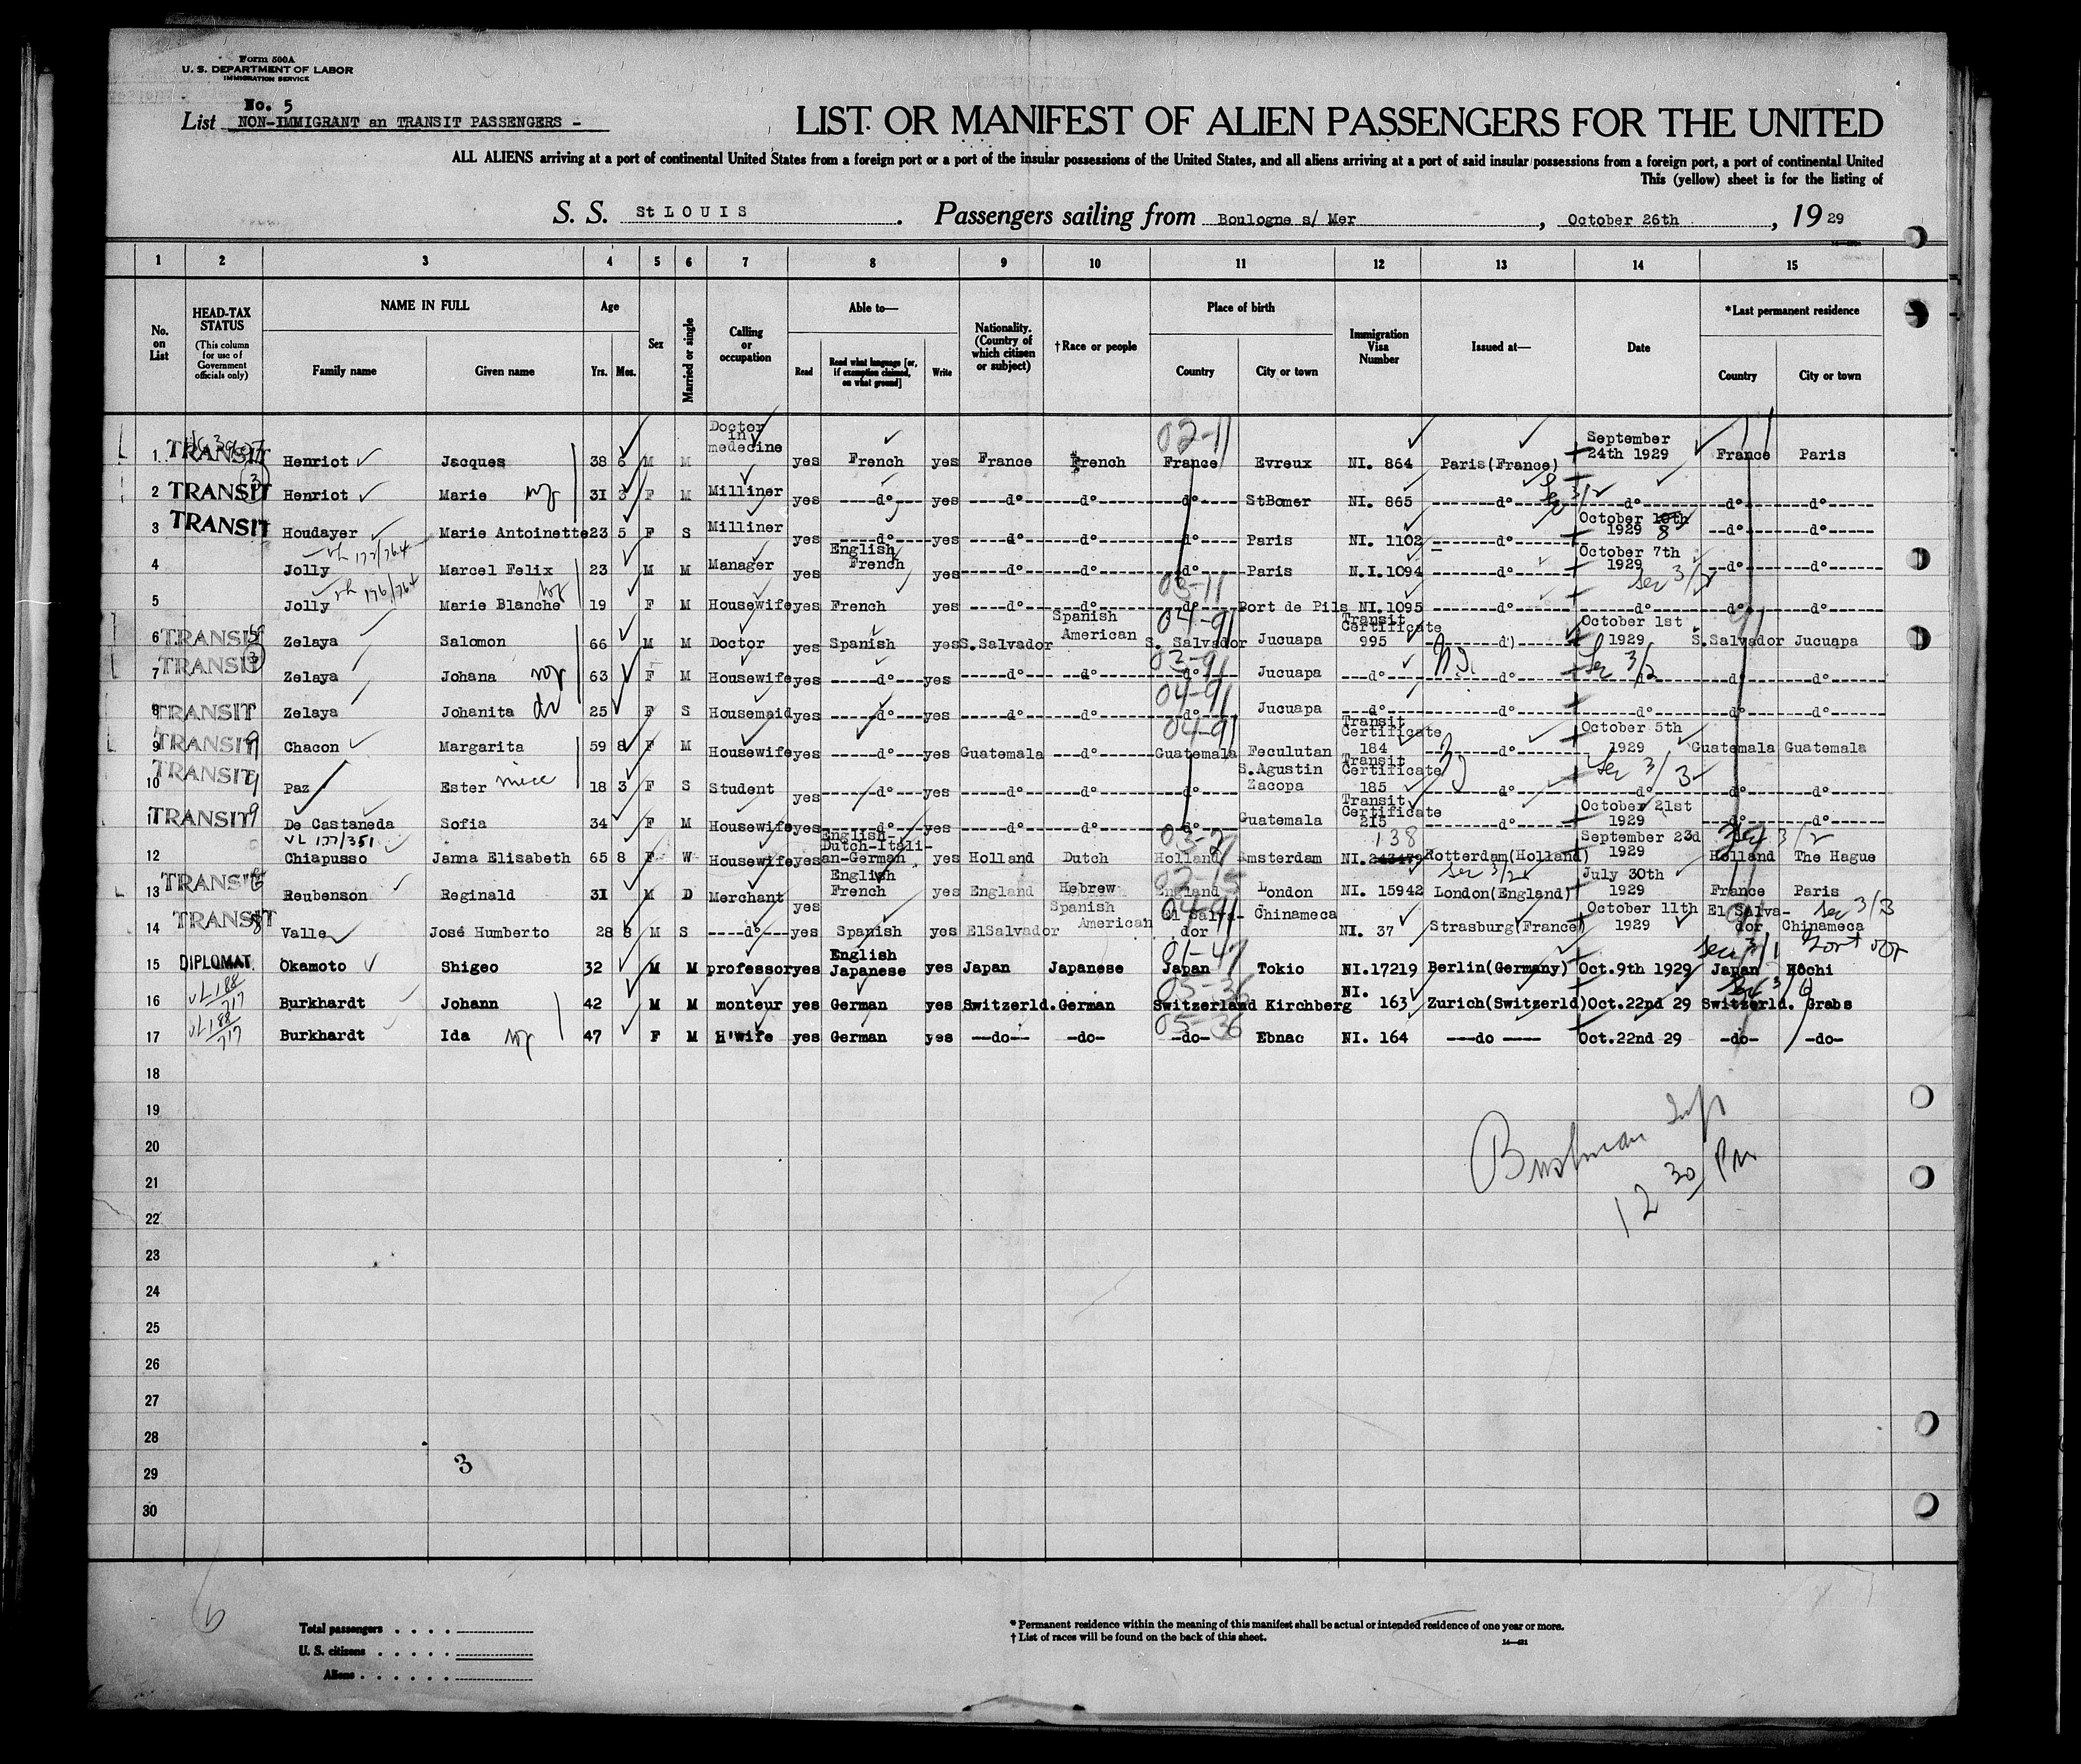 Form 500A
U. S. DEPARTMENT OF LABOR
IMMIGRATION SERVICE
No. 5
List NON-IMMIGRANT an TRANSIT PASSENGERS -
LIST OR MANIFEST OF ALIEN PASSENGERS FOR THE UNITED
ALL ALIENS arriving at a port of continental United States from a foreign port or a port of the insular possessions of the United States, and all aliens arriving at a port of said insular possessions from a foreign port, a port of continental United
This (yellow) sheet is for the listing of
S. S. St LOUIS. Passengers sailing from Boulogne s/ Mer, October 26th, 19 29
1 2 3 4 5 6 7 8 9 10 11 12 13 14 15
No. on List
HEAD-TAX STATUS (This column for use of Government officials only)
NAME IN FULL
Family name Given name
Age
Yrs. Mos.
Sex
Married or single
Calling or occupation
Able to—
Read Read what language [or, if exemption claimed, on what ground] Write
Nationality. (Country of which citizen or subject)
†Race or people
Place of birth
Country City or town
Immigration Visa Number
Issued at—
Date
*Last permanent residence
Country City or town
1 TRANSIT Henriot Jacques 38 6 M M Doctor in medecine yes French yes France French France Evreux NI. 864 Paris(France) September 24th 1929 France Paris 02-11
2 TRANSIT Henriot Marie 31 3 F M Milliner yes ----d°---- yes ----d°---- ----d°---- ----d°---- StBomer NI. 865 ----d°---- ----d°---- ----d°---- ----d°----
3 TRANSIT Houdayer Marie Antoinette 23 5 F S Milliner yes ----d°---- yes ----d°---- ----d°---- ----d°---- Paris NI. 1102 ----d°---- October 10th 8 1929 ----d°---- ----d°----
4 Jolly Marcel Felix 23 M M Manager yes English French yes ----d°---- ----d°---- ----d°---- Paris N.I.1094 ----d°---- October 7th 1929 ----d°---- ----d°----
5 Jolly Marie Blanche 19 F M Housewife yes French yes ----d°---- ----d°---- ----d°---- Port de Pils NI.1095 ----d°---- ----d°---- ----d°---- ----d°---- 03-11
6 TRANSIT Zelaya Salomon 66 M M Doctor yes Spanish yes S.Salvador Spanish American S. Salvador Jucuapa Transit Certificate 995 ----d) October 1st 1929 S.Salvador Jucuapa 04-91
7 TRANSIT Zelaya Johana 63 F M Housewife yes ----d°---- yes ----d°---- ----d°---- ----d°---- Jucuapa ---d°--- ----d°---- ----d°---- ----d°---- ----d°---- 03-91
8 TRANSIT Zelaya Johanita 25 F S Housemaid yes ----d°---- yes ----d°---- ----d°---- ----d°---- Jucuapa ---d°--- ----d°---- ----d°---- ----d°---- ----d°---- 04-91
9 TRANSIT Chacon Margarita 59 8 F M Housewife yes ----d°---- yes Guatemala ----d°---- Guatemala Feculutan Transit Certificate 184 ----d°---- October 5th 1929 Guatemala Guatemala 04-91
10 TRANSIT Paz Ester niece 18 3 F S Student yes ----d°---- yes ----d°---- ----d°---- ----d°---- S.Agustin Zacopa Transit Certificate 185 ----d°---- ----d°---- ----d°---- ----d°----
11 TRANSIT De Castaneda Sofia 34 F M Housewife yes ----d°---- yes ----d°---- ----d°---- ----d°---- Guatemala Transit Certificate 215 ----d°---- October 21st 1929 ----d°---- ----d°----
12 Chiapusso Janna Elisabeth 65 8 F W Housewife yes English-Dutch-Itali-an-German yes Holland Dutch Holland Amsterdam NI. 138 Rotterdam(Holland) September 23d 1929 Holland The Hague
13 TRANSIT Reubenson Reginald 31 M D Merchant yes English French yes England Hebrew England London NI. 15942 London(England) July 30th 1929 France Paris
14 TRANSIT Valle José Humberto 28 8 M S ----d°--- yes Spanish yes ElSalvador Spanish American El Salva-dor Chinameca NI. 37 Strasburg(France) October 11th 1929 El Salva-dor Chinameca 04-91
15 DIPLOMAT. Okamoto Shigeo 32 M M professor yes English Japanese yes Japan Japanese Japan Tokio NI.17219 Berlin(Germany) Oct.9th 1929 Japan Kochi 01-47
16 Burkhardt Johann 42 M M monteur yes German yes Switzerld. German Switzerland Kirchberg NI. 163 Zurich(Switzerld) Oct.22nd 29 Switzerld. Grabs 05-36
17 Burkhardt Ida 47 F M H'wife yes German yes --do-- -do- -do- Ebnac NI. 164 ---do ---- Oct.22nd 29 -do- -do- 05-36
18
19
20
21
22
23
24
25
26
27
28
29
30
12 30 PM
3
Total passengers
U. S. citizens
Aliens
* Permanent residence within the meaning of this manifest shall be actual or intended residence of one year or more.
† List of races will be found on the back of this sheet.